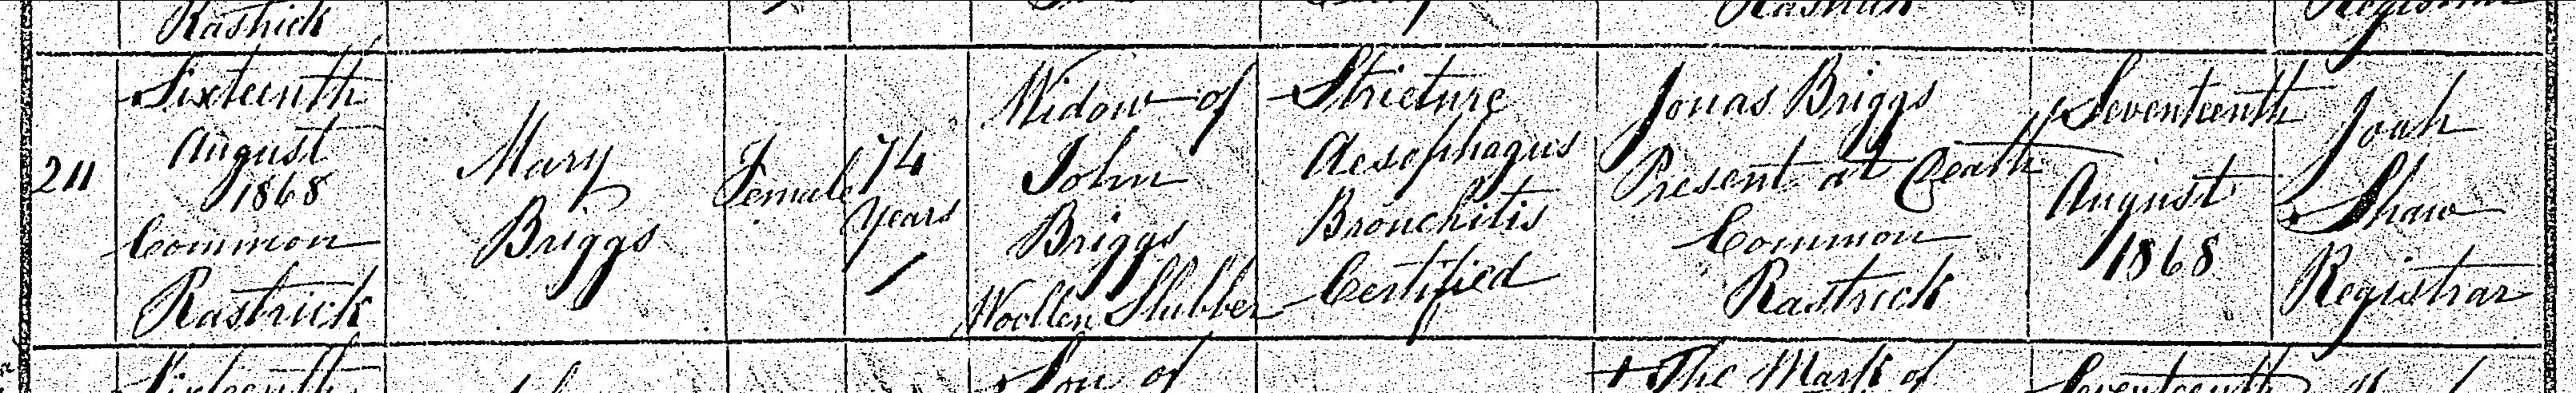 Rastrick
Rastrick
Registrar
211
Sixteenth
August
1868
Common
Rastrick
Mary
Briggs
Female
74
Years
Widow of
John
Briggs
Woollen Slubber
Stricture
Aesophagus
Bronchitis
Certified
Jonas Briggs
Present at Death
Common
Rastrick
Seventeenth
August
1868
Joah
Shaw
Registrar
Sixteenth
Son of
The Mark of
Seventeenth